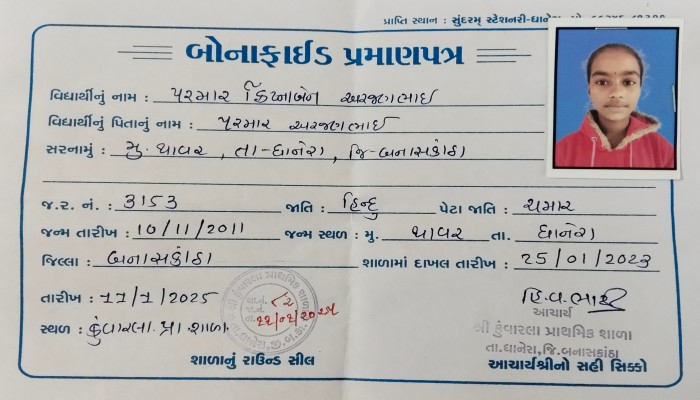 પ્રાપ્તિ સ્થાન : સુંદરમ્ સ્ટેશનરી-ધાનેરા
બોનાફાઈડ પ્રમાણપત્ર
વિદ્યાર્થીનું નામ : પરમાર ક્રિષ્નાબેન અરજણભાઈ
વિદ્યાર્થીનું પિતાનું નામ : પરમાર અરજણભાઈ
સરનામું : મુ. થાવર, તા-ધાનેરા, જિ-બનાસકાંઠા
જ.ર. નં. : 3153 જાતિ : હિન્દુ પેટા જાતિ : ચમાર
જન્મ તારીખ : 10/11/2011 જન્મ સ્થળ : મુ. થાવર તા. ધાનેરા
જિલ્લા : બનાસકાંઠા શાળામાં દાખલ તારીખ : 25/01/2023
તારીખ : 22/1/2025
સ્થળ : કુંવારલા પ્રા. શાળા
શાળાનું રાઉન્ડ સીલ
આચાર્ય
શ્રી કુંવારલા પ્રાથમિક શાળા
તા.ધાનેરા,જિ.બનાસકાંઠા
આચાર્યશ્રીનો સહી સિક્કો